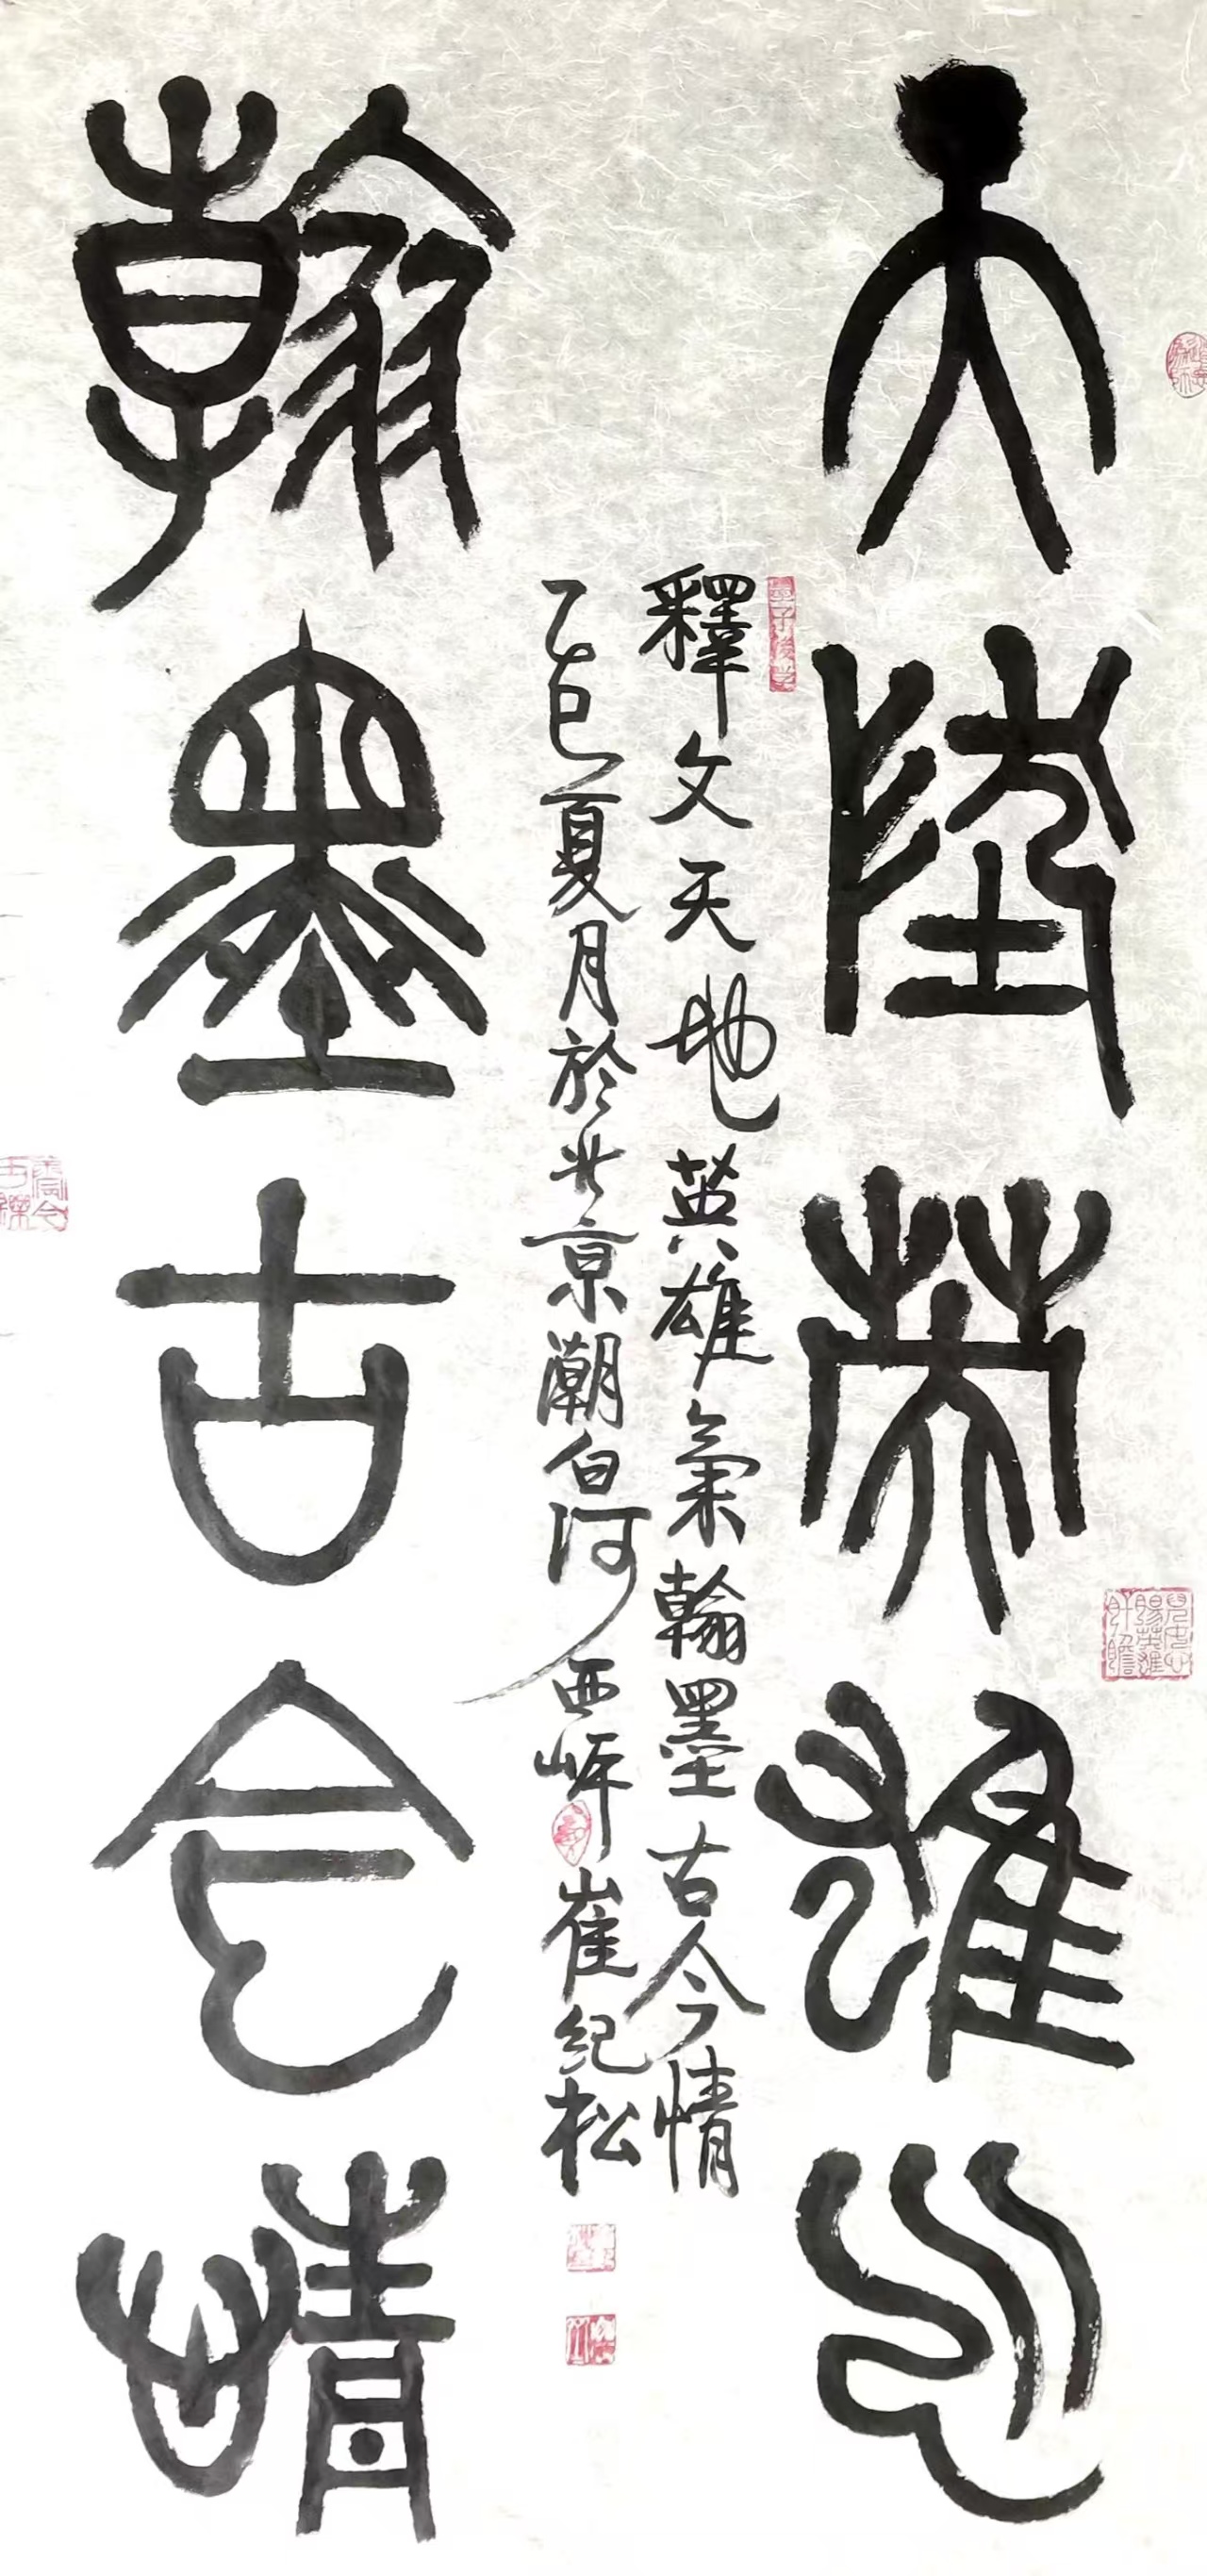 天地英雄氣
釋文天地英雄氣翰墨古今情
乙巳夏月於北京潮白河西岸崔紀松
翰墨古今情